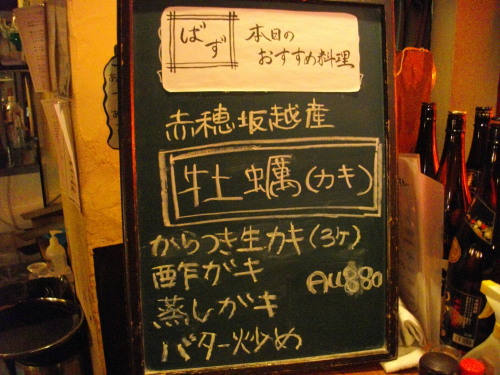 ばず
本日の
おすすめ料理
赤穂坂越産
牡蠣(カキ)
からつき生カキ(3ケ)
酢ガキ
All 880
蒸しガキ
バター炒め